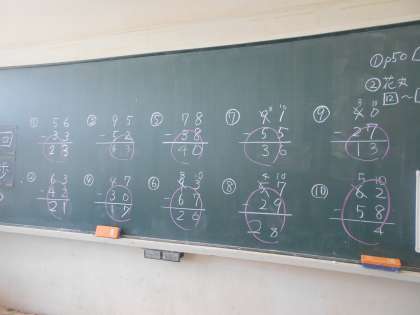 ①p50
②花丸
12～
① 56
-33
23
③ 95
-52
43
⑤ 78
-38
40
⑦ 8 10
91
-55
36
⑨ 3 10
40
-27
13
② 63
-42
21
④ 47
-30
17
⑥ 93
-67
26
⑧ 4 10
57
-29
28
⑩ 5 10
62
-58
4